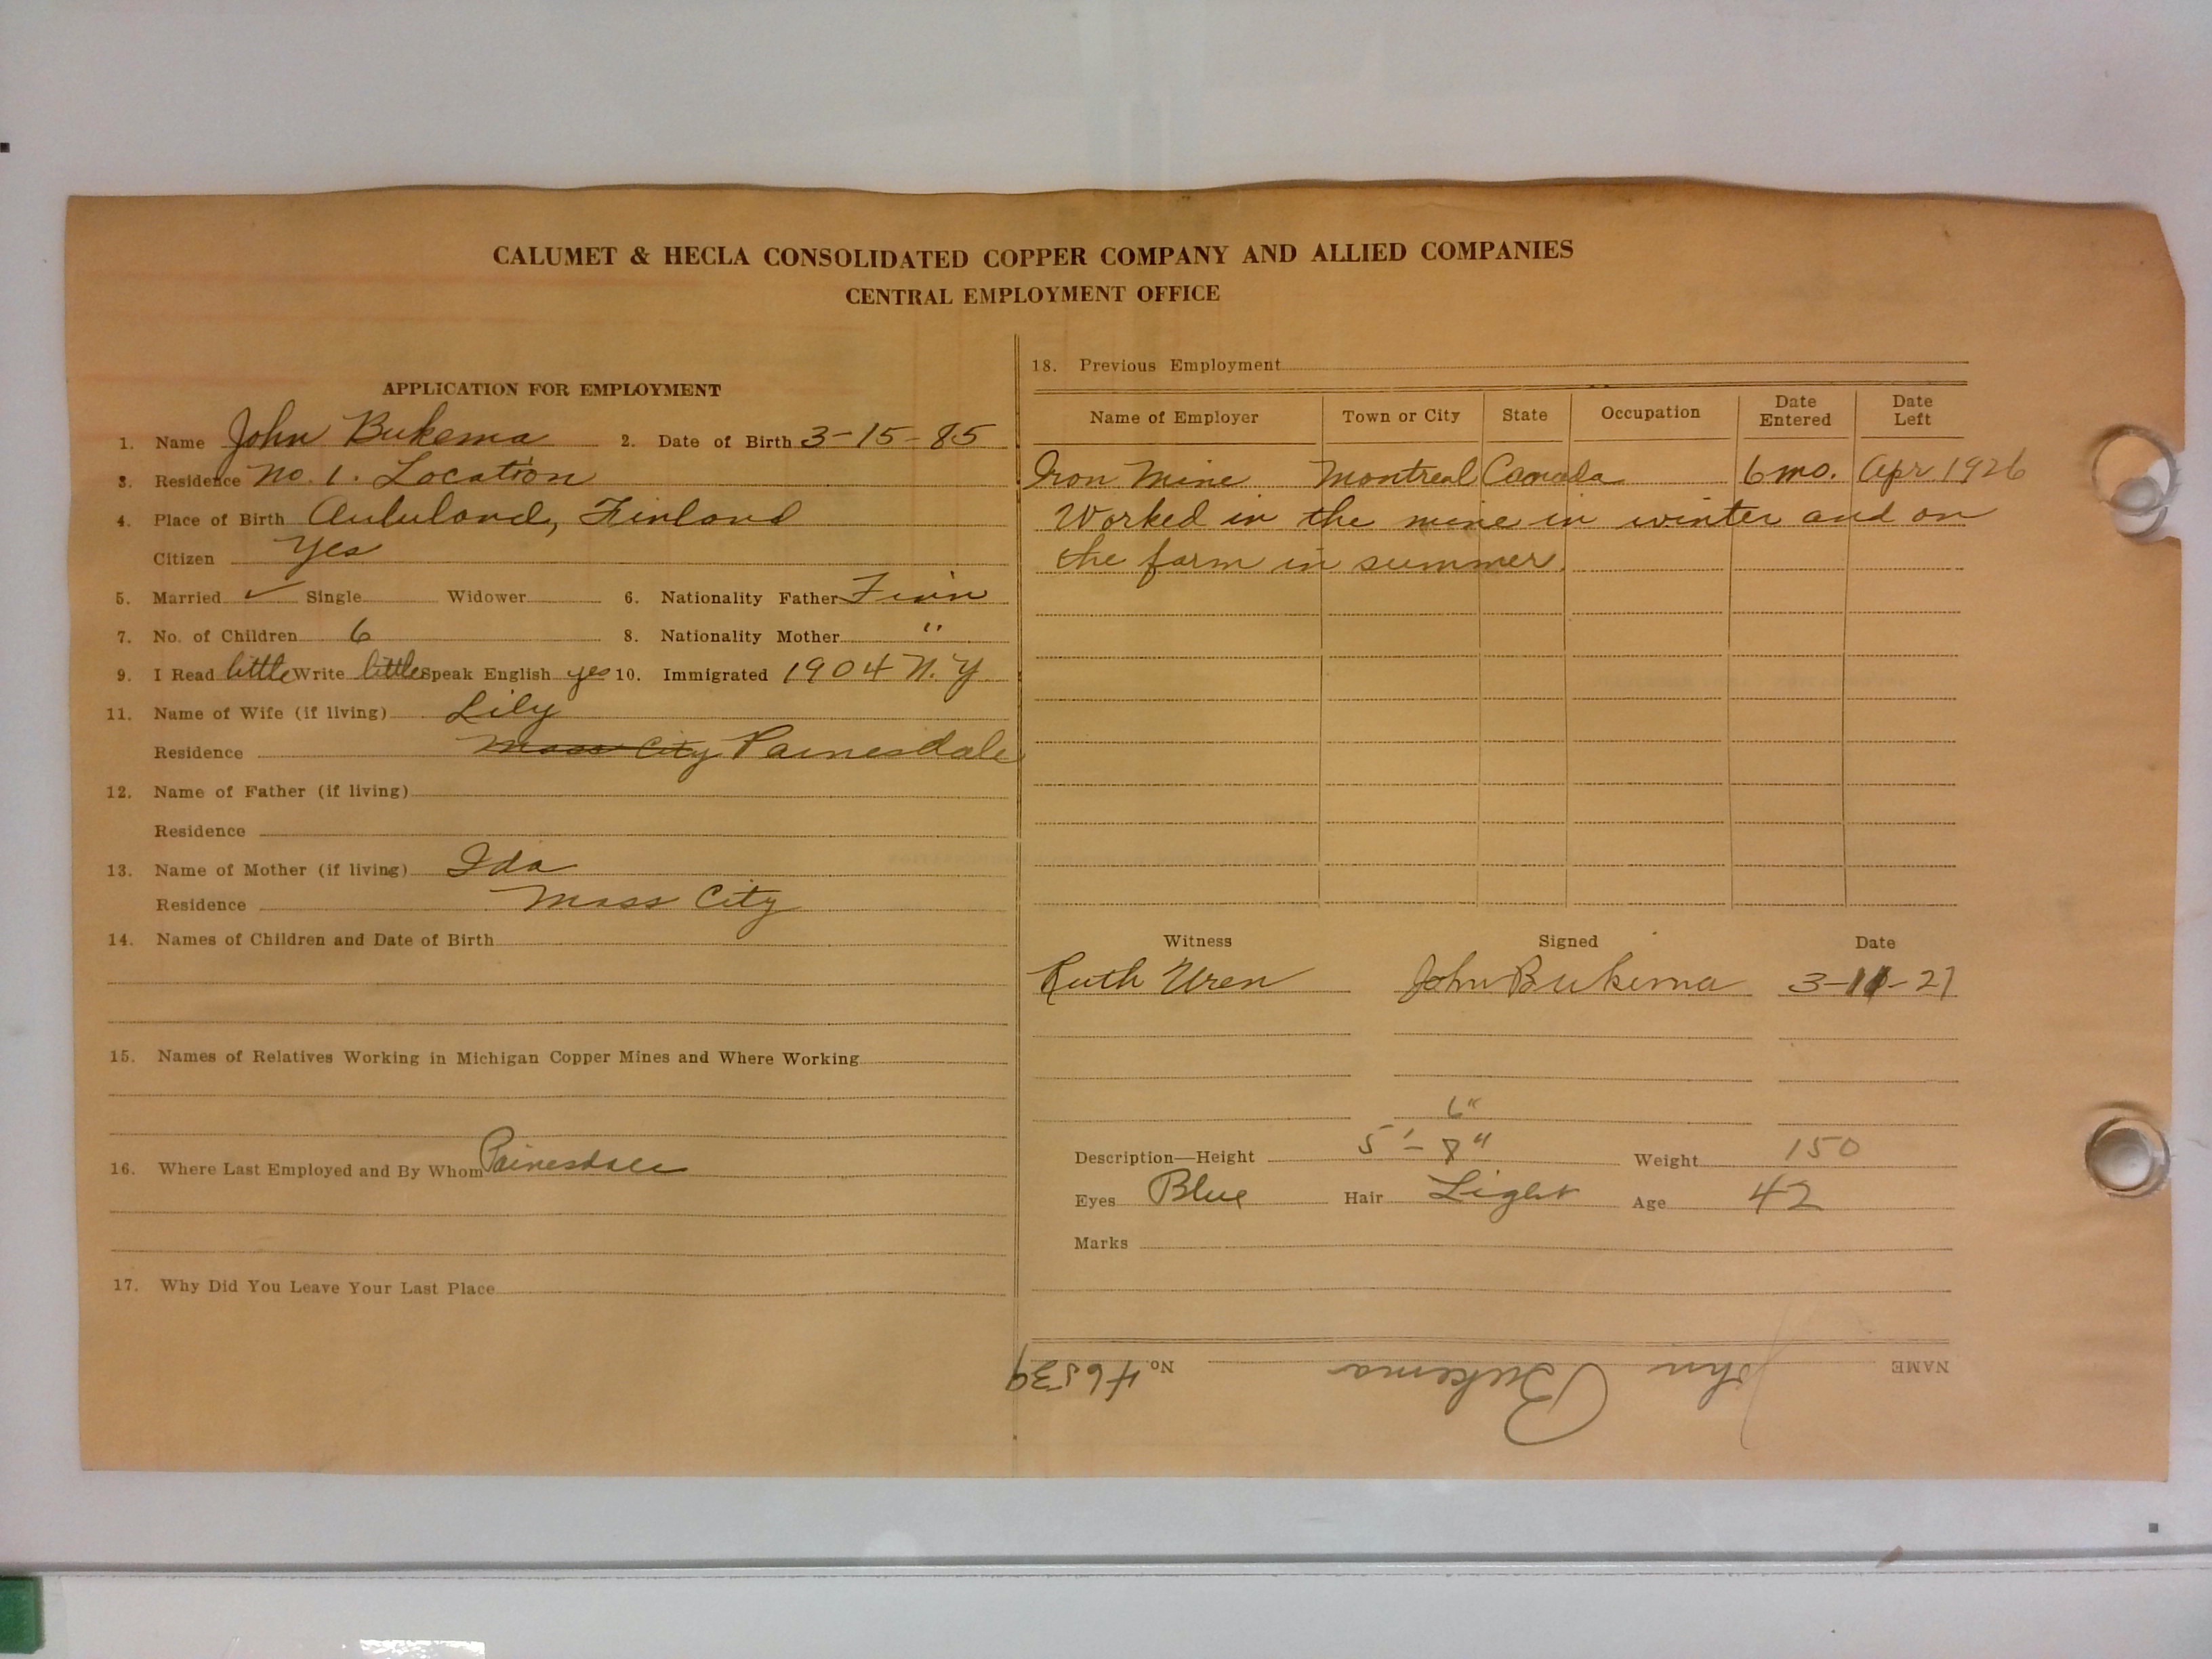 CALUMET & HECLA CONSOLIDATED COPPER COMPANY AND ALLIED COMPANIES
CENTRAL EMPLOYMENT OFFICE
APPLICATION FOR EMPLOYMENT
1. Name John Bukema 2. Date of Birth 3-15-85
3. Residence No. 1. Location
4. Place of Birth Finland
Citizen Yes
5. Married ✓ Single Widower 6. Nationality Father Finn
7. No. of Children 6 8. Nationality Mother "
9. I Read little Write little Speak English yes 10. Immigrated 1904 N.Y.
11. Name of Wife (if living) Lily
Residence Mass City Painesdale
12. Name of Father (if living)
Residence
13. Name of Mother (if living) Ida
Residence Mass City
14. Names of Children and Date of Birth
15. Names of Relatives Working in Michigan Copper Mines and Where Working
16. Where Last Employed and By Whom Painesdale
17. Why Did You Leave Your Last Place
18. Previous Employment
Name of Employer Town or City State Occupation Date Entered Date Left
Iron Mine Montreal Canada 6 mo. Apr 1926
Worked in the mine in winter and on
the farm in summer.
Witness Signed Date
Ruth Uren John Bukema 3-11-27
6"
Description—Height 5'-8" Weight 150
Eyes Blue Hair Light Age 42
Marks
NAME John Bukema No. 46539